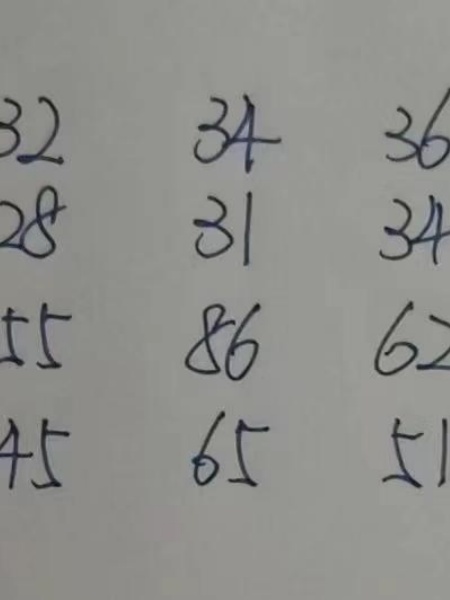 32 34 36
28 31 34
55 86 62
45 65 51